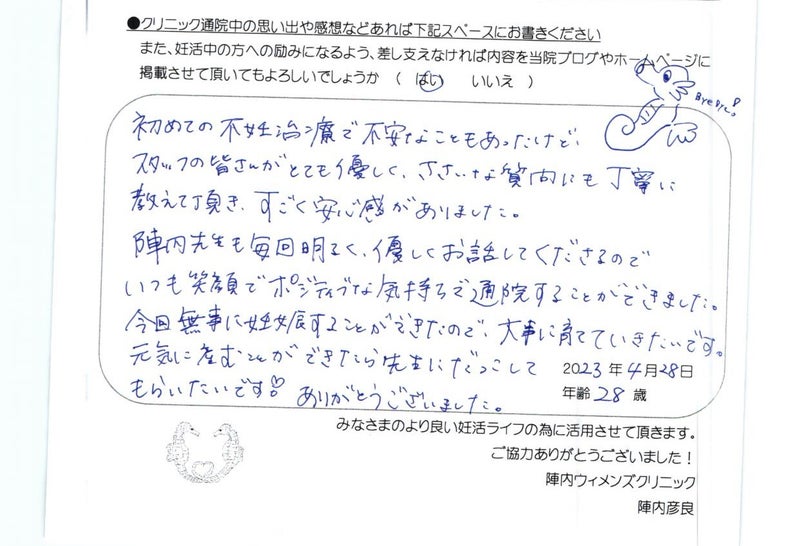 ●クリニック通院中の思い出や感想などあれば下記スペースにお書きください
また、妊活中の方への励みになるよう、差し支えなければ内容を当院ブログやホームページに
掲載させて頂いてもよろしいでしょうか ( はい いいえ )
Bye Bye!
初めての不妊治療で不安なこともあったけど、
スタッフの皆さんがとても優しく、ささいな質問にも丁寧に
教えて頂き、すごく安心感がありました。
陣内先生も毎回明るく、優しくお話してくださるので
いつも笑顔でポジティブな気持ちで通院することができました。
今回無事に妊娠することができたので、大事に育てていきたいです。
元気に産むことができたら先生にだっこして
もらいたいです♡ ありがとうございました。
2023年4月28日
年齢28歳
みなさまのより良い妊活ライフの為に活用させて頂きます。
ご協力ありがとうございました！
陣内ウィメンズクリニック
陣内彦良